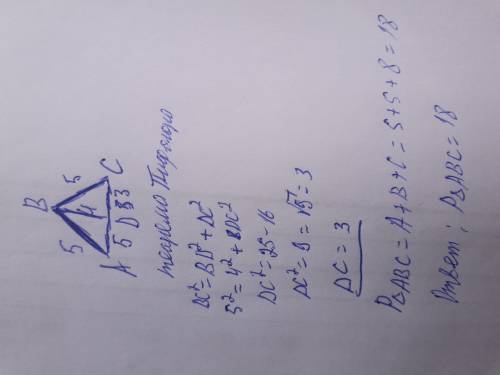 B
5 5
4
A 5 D 3 3 C
теорема Пифагора
BC² = BD² + DC²
5² = 4² + DC²
DC² = 25 - 16
DC² = 9 = √9 = 3
DC = 3
P△ABC = A + B + C = 5 + 5 + 8 = 18
Ответ: P△ABC = 18